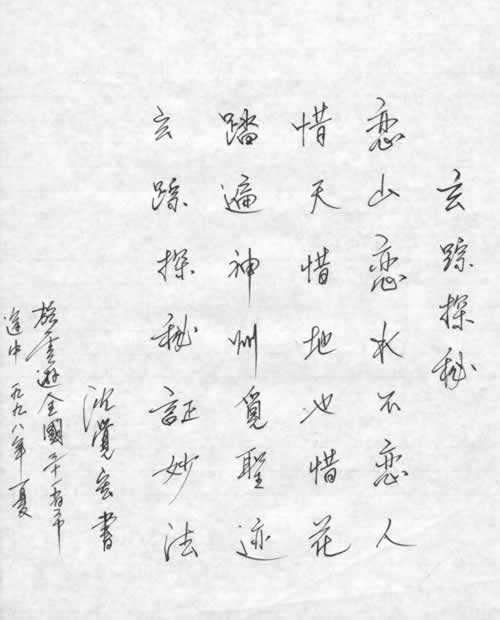 玄踪探秘
恋山恋水不恋人
惜天惜地也惜花
踏遍神州覓聖迹
玄踪探秘証妙法
覺玄書
於雲遊全國十省市
途中 一九九八年夏